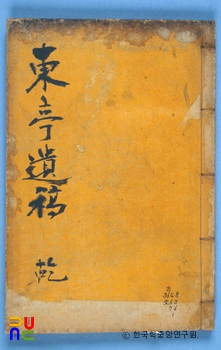 東亭遺稿
乾
ⓒ 한국학중앙연구원